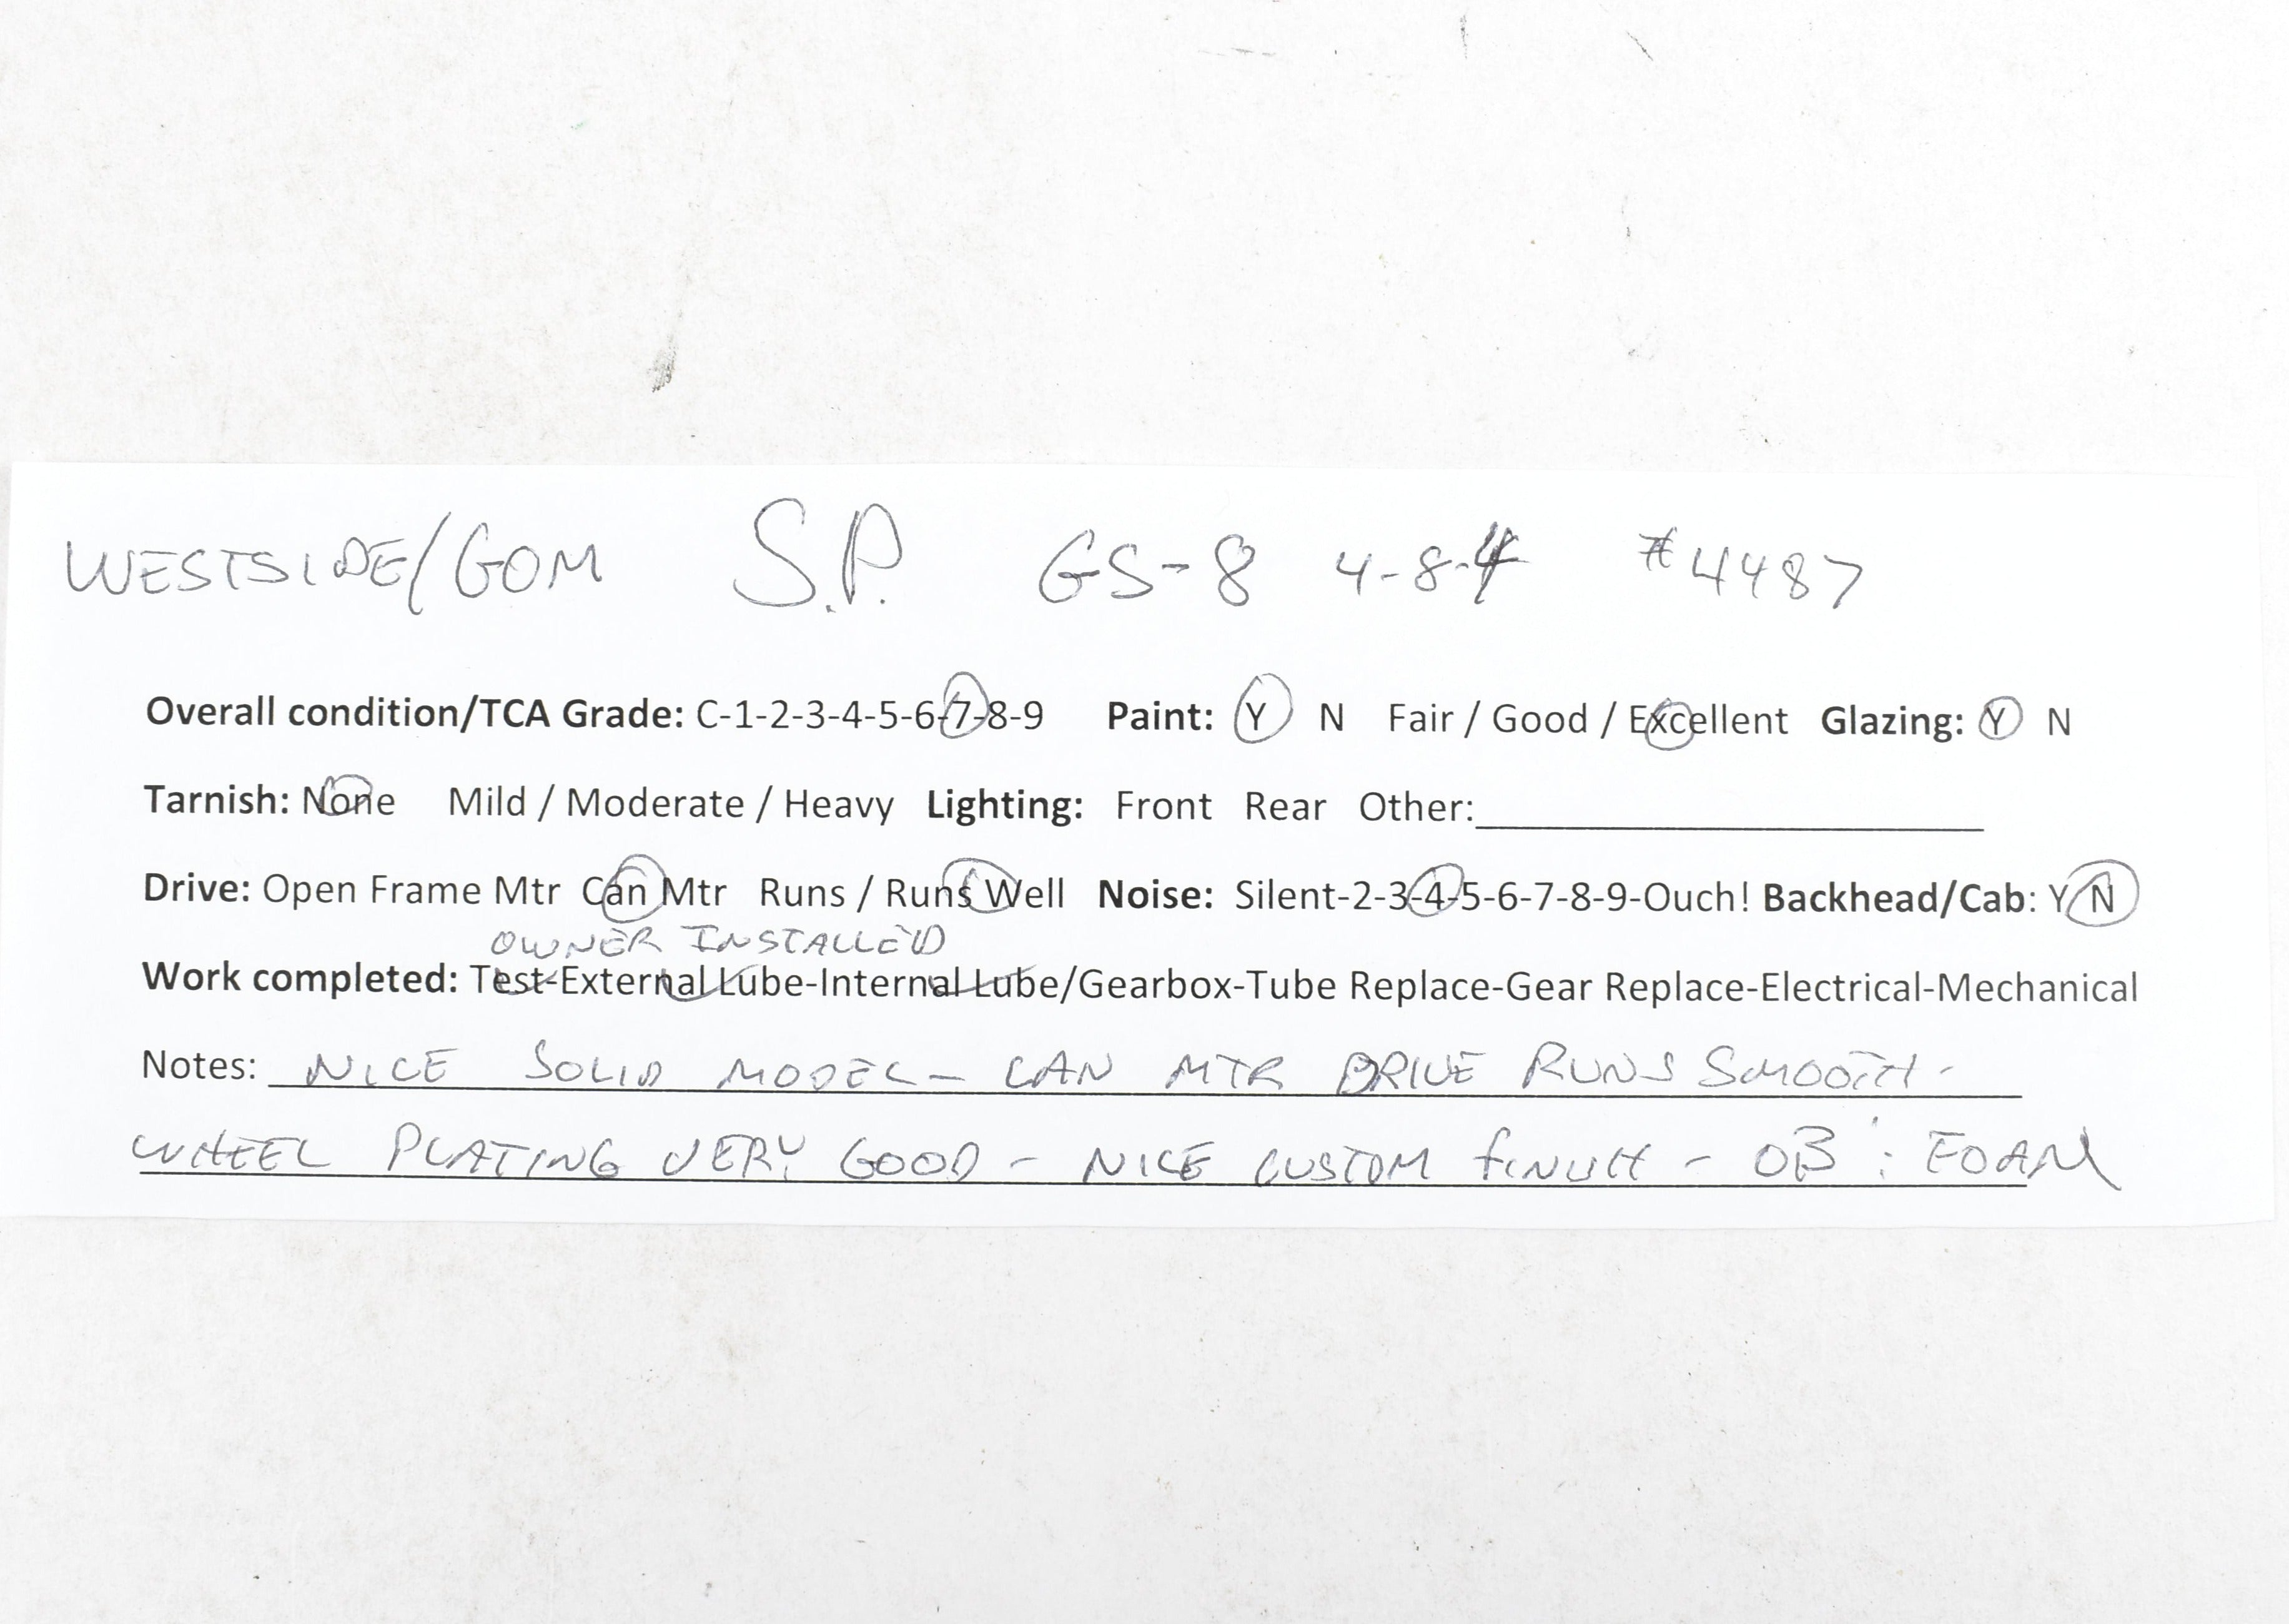 WESTSIDE/GOM S.P. GS-8 4-8-4 #4487
Overall condition/TCA Grade: C-1-2-3-4-5-6-7-8-9 Paint: Y N Fair / Good / Excellent Glazing: Y N
Tarnish: None Mild / Moderate / Heavy Lighting: Front Rear Other:
Drive: Open Frame Mtr Can Mtr Runs / Runs Well Noise: Silent-2-3-4-5-6-7-8-9-Ouch! Backhead/Cab: Y N
OWNER INSTALLED
Work completed: Test-External Lube-Internal Lube/Gearbox-Tube Replace-Gear Replace-Electrical-Mechanical
Notes: NICE SOLID MODEL - CAN MTR DRIVE RUNS SMOOTH -
WHEEL PLATING VERY GOOD - NICE CUSTOM FINISH - OB : FOAM